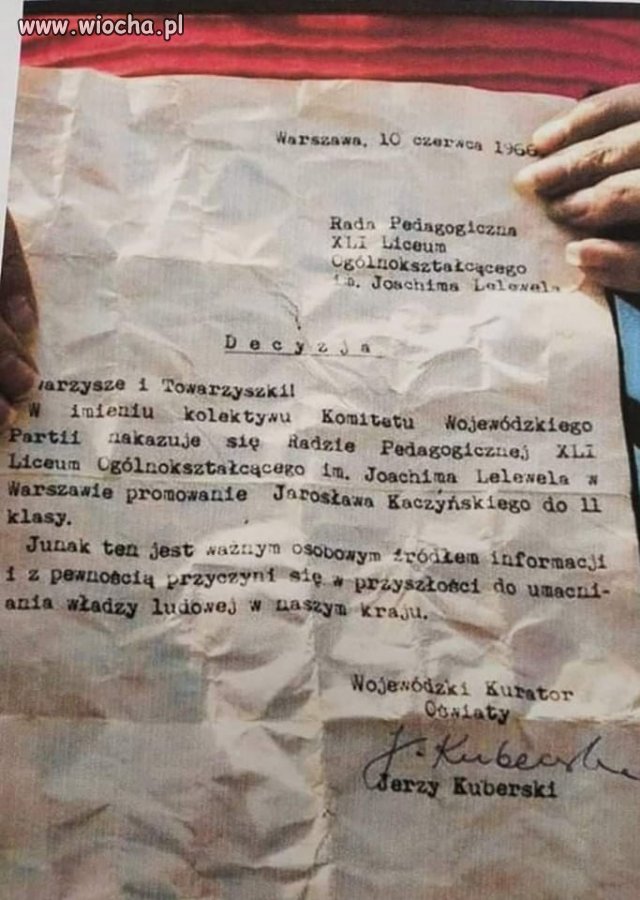 www.wiocha.pl
Warszawa, 10 czerwca 1966
Rada Pedagogiczna
XLI Liceum
Ogólnokształcącego
im. Joachima Lelewela
Decyzja
warzysze i Towarzyszki!
W imieniu kolektywu Komitetu Wojewódzkiego
Partii nakazuje się Radzie Pedagogicznej XLI
Liceum Ogólnokształcącego im. Joachima Lelewela w
Warszawie promowanie Jarosława Kaczyńskiego do 11
klasy.
Junak ten jest ważnym osobowym źródłem informacji
i z pewnością przyczyni się w przyszłości do umacni-
ania władzy ludowej w naszym kraju.
Wojewódzki Kurator
Oświaty
J. Kuberski
Jerzy Kuberski